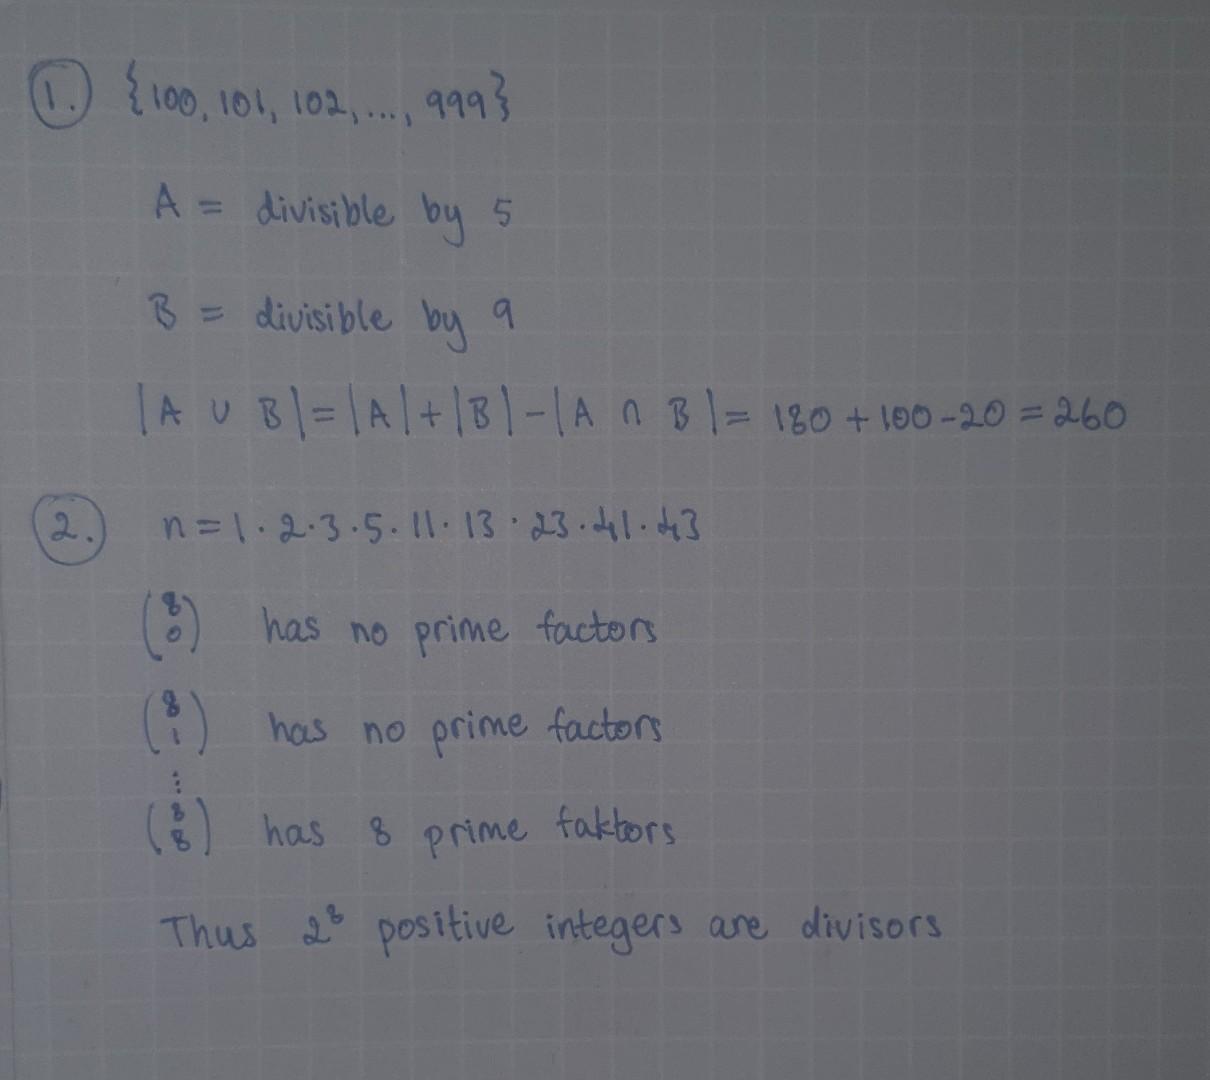 1. {100, 101, 102, ..., 999}
A = divisible by 5
B = divisible by 9
|A ∪ B| = |A| + |B| - |A ∩ B| = 180 + 100 - 20 = 260
2. n = 1 · 2 · 3 · 5 · 11 · 13 · 23 · 41 · 43
(8 0) has no prime factors
(8 1) has no prime factors
⋮
(8 8) has 8 prime faktors
Thus 2⁸ positive integers are divisors